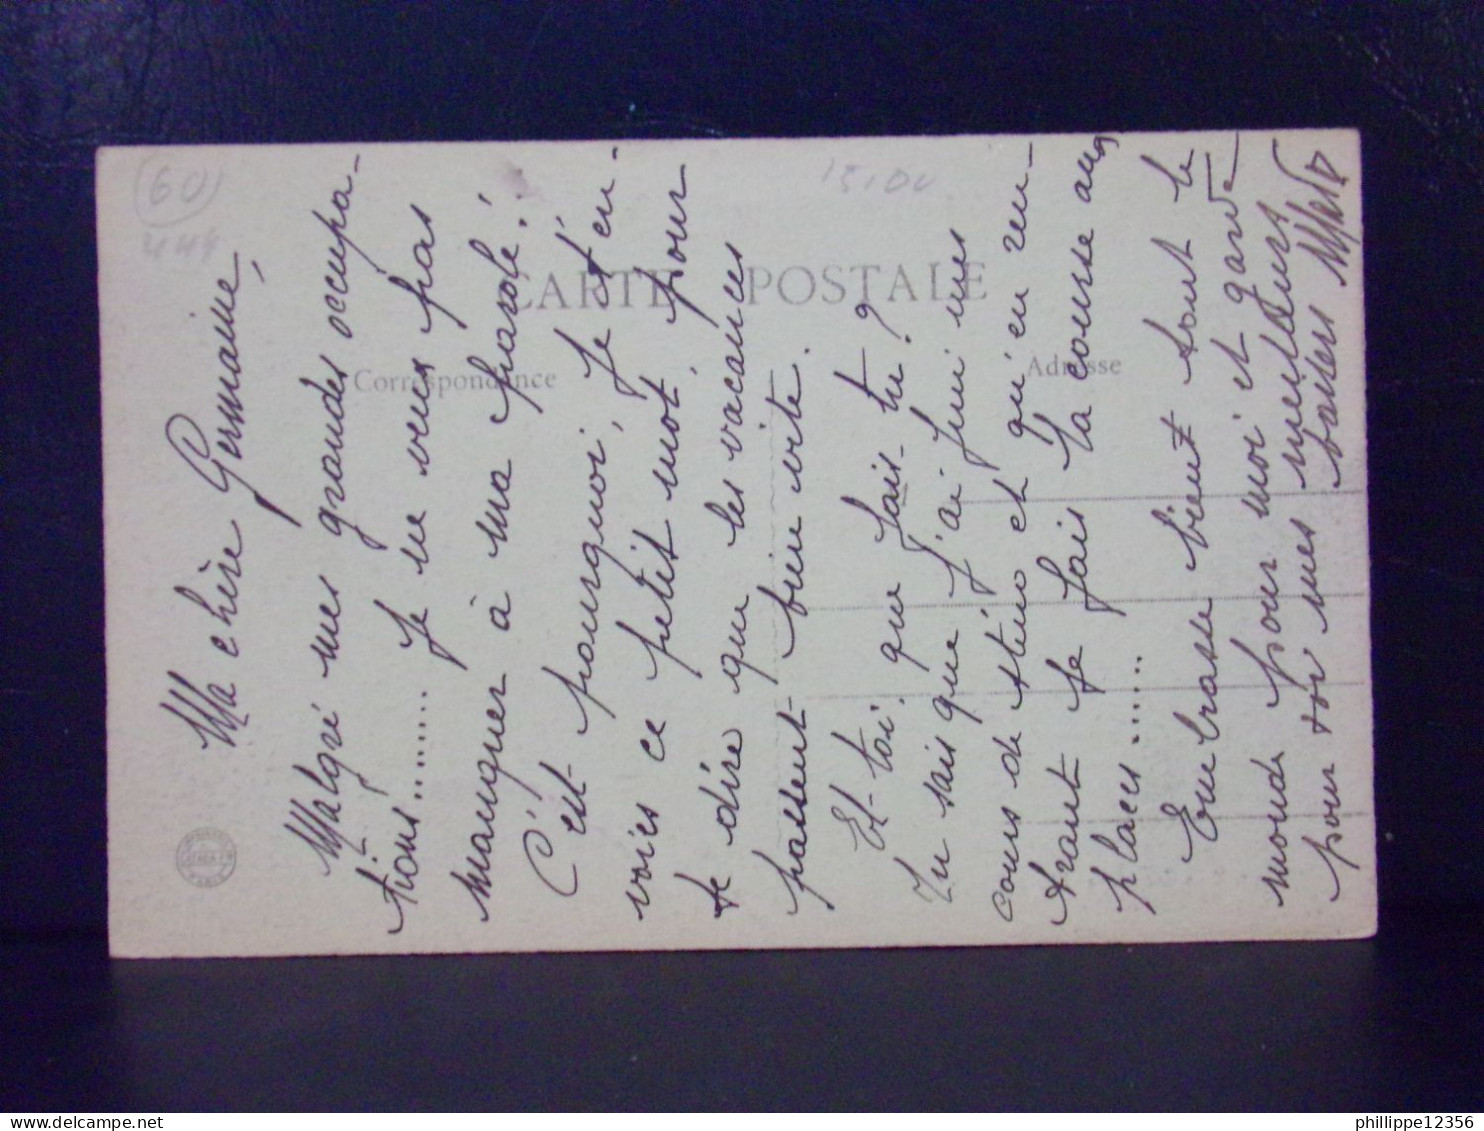 Ma chère Germaine,
Malgré mes grandes occupa-
tions....... Je ne veux pas
manquer à ma parole!
C'est pourquoi, Je t'en-
voies ce petit mot, pour
te dire que les vacances
passent bien vite.
Et-toi, que fais-tu?
Tu sais que J'ai fini mes
cours de sténo et qu'en ren-
trant Je fais la course aux
places......
Embrasse bient tout le
monde pour moi et garde
pour toi mes meilleurs
baisers
CARTE POSTALE
Correspondance
Adresse
60
15,00
phillippe12356